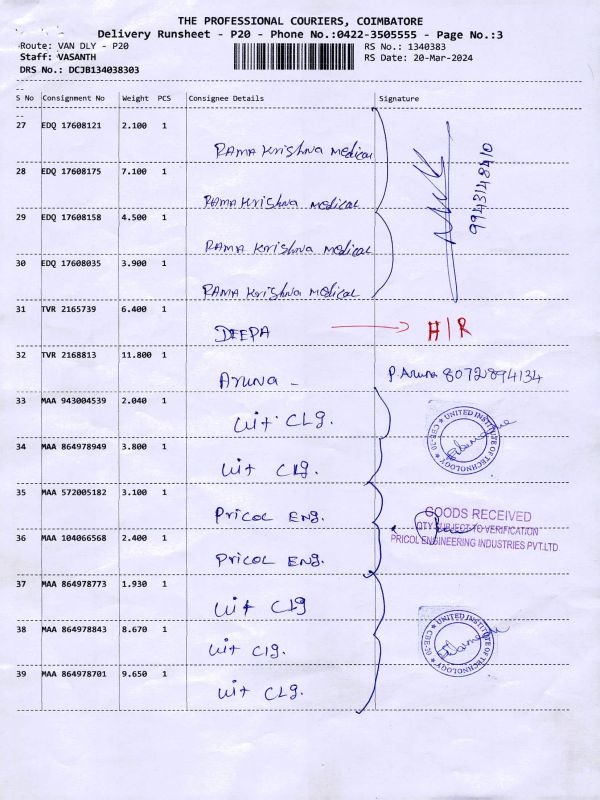 THE PROFESSIONAL COURIERS, COIMBATORE
Delivery Runsheet - P20 - Phone No.:0422-3505555 - Page No.:3
Route: VAN DLY - P20 RS No.: 1340383
Staff: VASANTH RS Date: 20-Mar-2024
DRS No.: DCJB134038303
S No Consignment No Weight PCS Consignee Details Signature
27 EDQ 17608121 2.100 1
Rama Krishna Medical
28 EDQ 17608175 7.100 1
Rama Krishna Medical
9943148410
29 EDQ 17608158 4.500 1
Rama Krishna Medical
30 EDQ 17608035 3.900 1
Rama Krishna Medical
31 TVR 2165739 6.400 1
DEEPA H/R
32 TVR 2168813 11.800 1
Aruna - P. Aruna 8072894134
33 MAA 943004539 2.040 1
Uit Clg.
UNITED INSTITUTE OF TECHNOLOGY CBE-20
34 MAA 864978949 3.800 1
Uit Clg.
35 MAA 572005182 3.100 1
Pricol Eng.
GOODS RECEIVED
QTY SUBJECT TO VERIFICATION
PRICOL ENGINEERING INDUSTRIES PVT.LTD
36 MAA 104066568 2.400 1
Pricol Eng.
37 MAA 864978773 1.930 1
Uit Clg
38 MAA 864978843 8.670 1
Uit Clg.
UNITED INSTITUTE OF TECHNOLOGY CBE-20
39 MAA 864978701 9.650 1
Uit Clg.